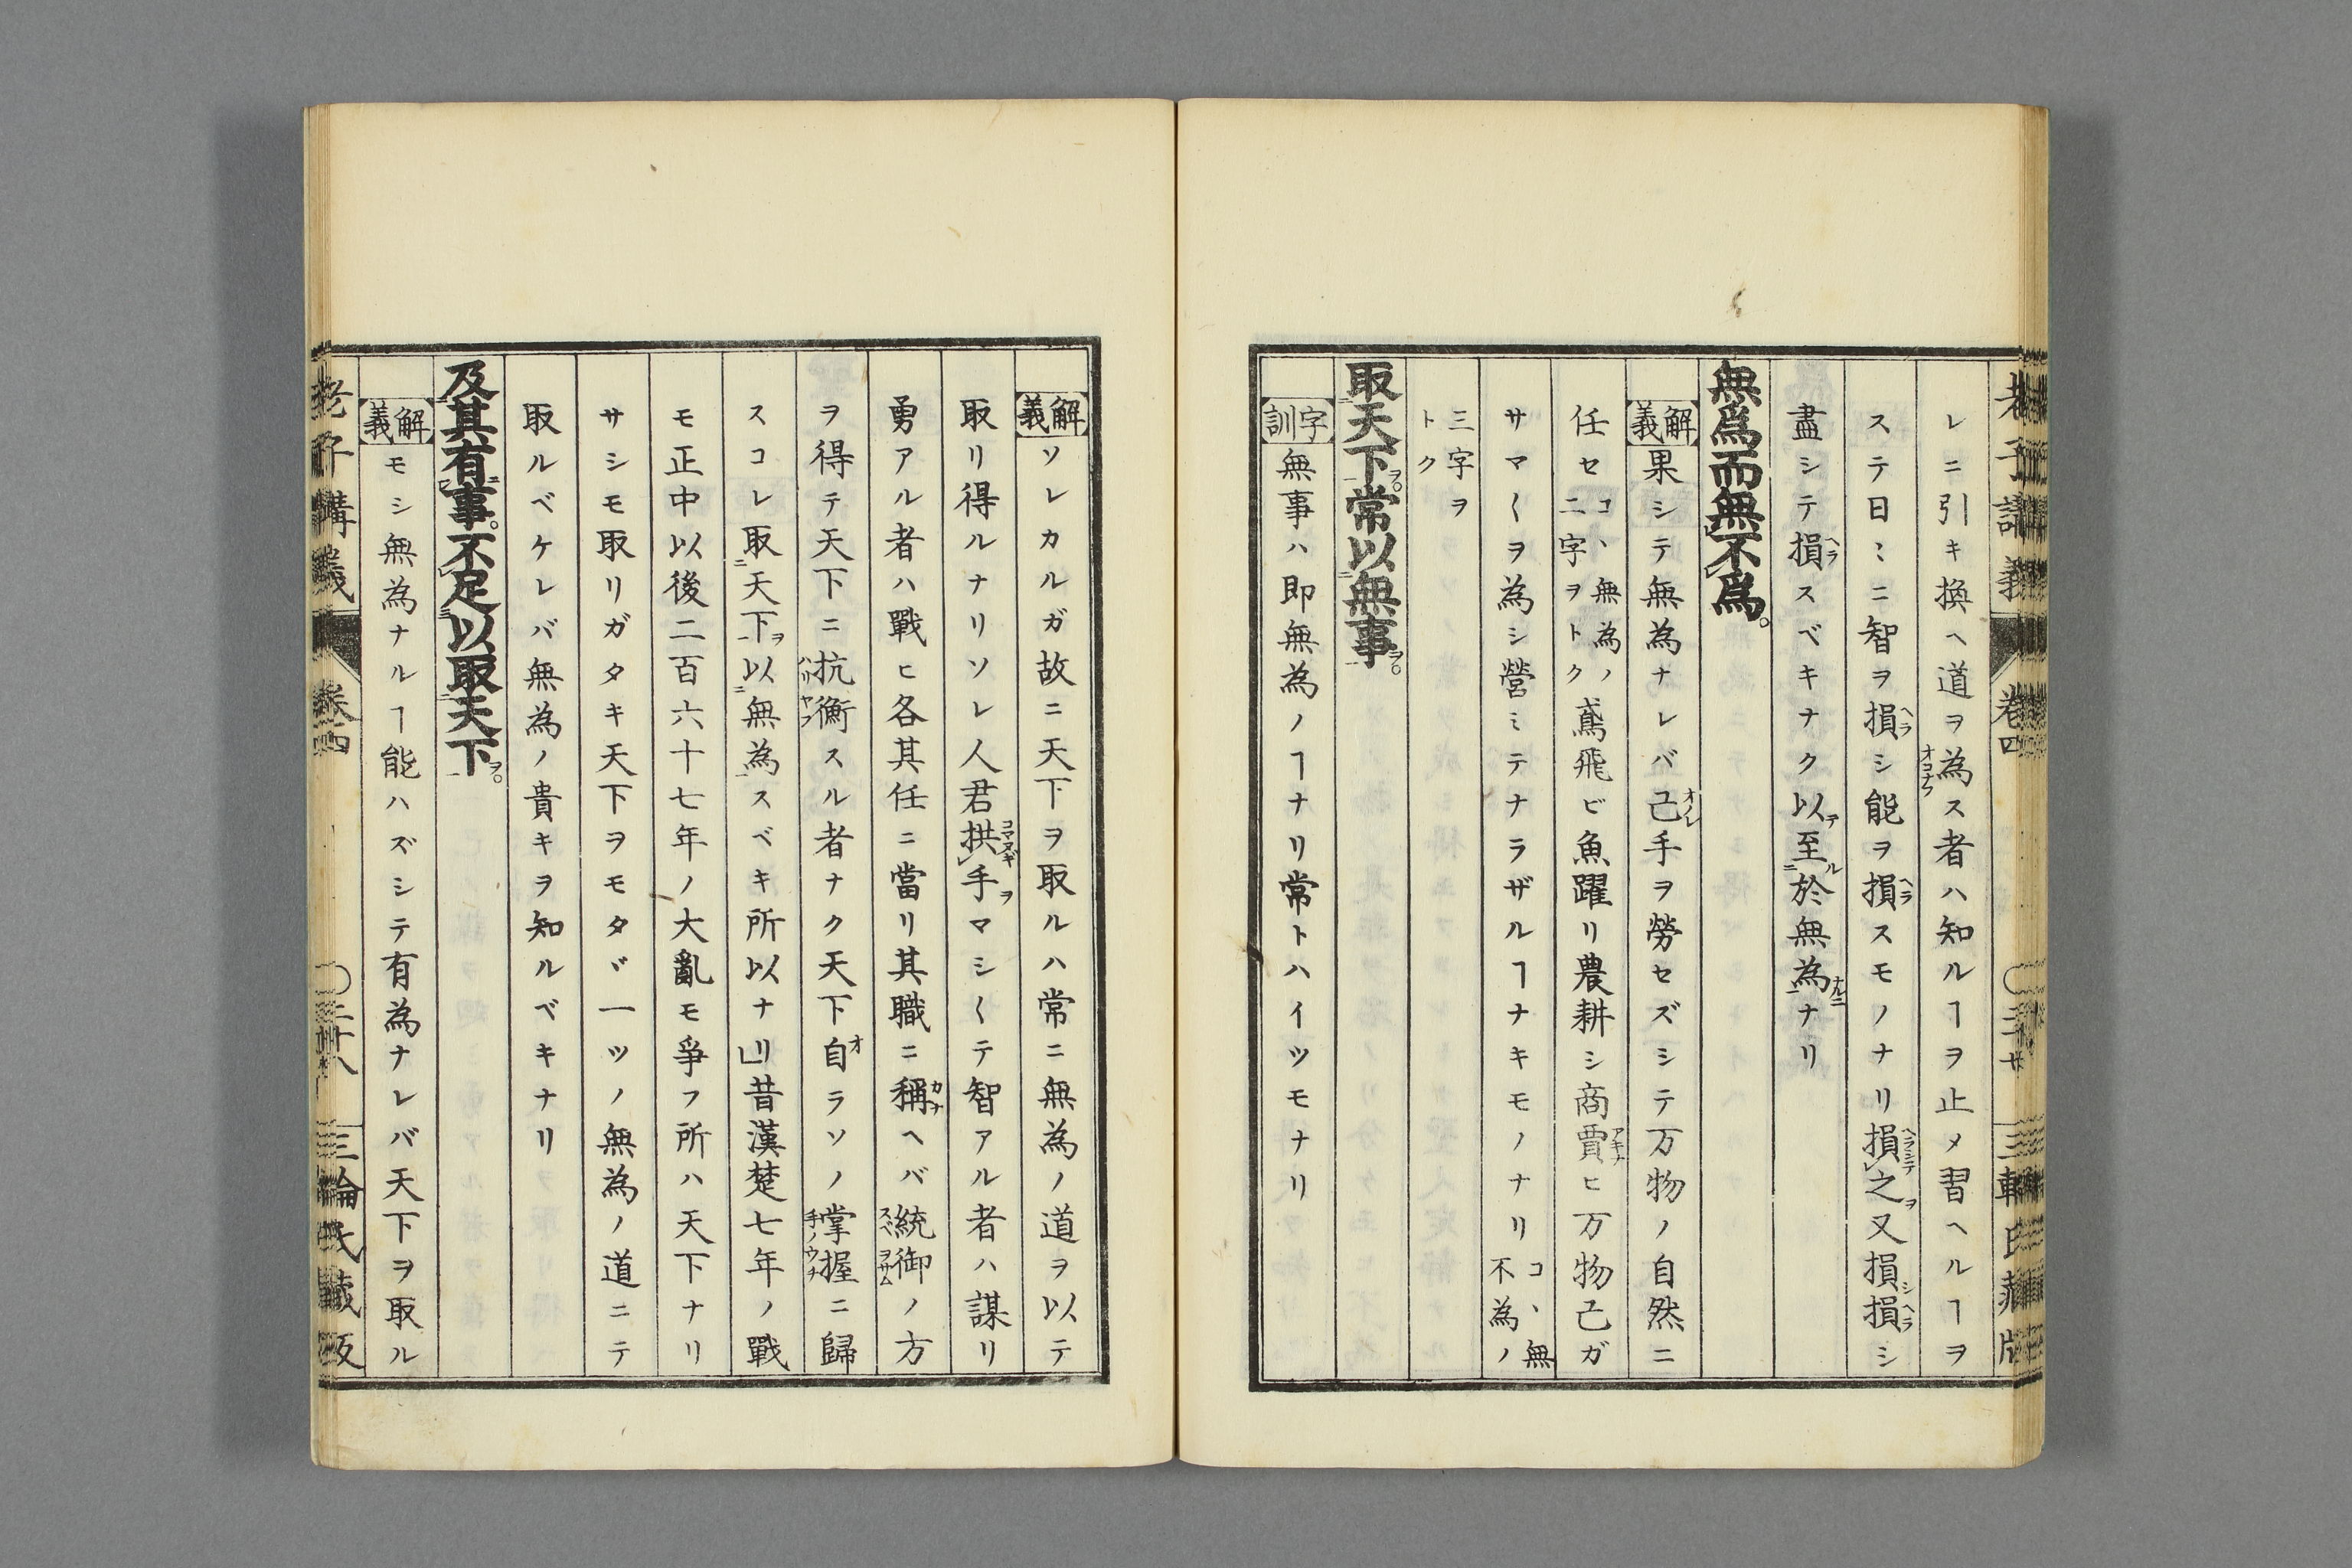 老子講義 巻四 三輪氏蔵版
レニ引キ換ヘ道ヲ為オコナウス者ハ知ルヿヲ止メ習ヘルヿヲ
ステ日〻ニ智ヲ損ヘラシ能ヲ損ヘラスモノナリ損ヘラシテレ之ヲ又損シ損ヘラシ
盡シテ損ヘラスベキナク以テ至ルニ於無為ナルニ一ナリ
無爲而無レ不レ爲。
解義 果シテ無為ナレバ己オノレ手ヲ勞セズシテ万物ノ自然ニ
任セコヽ無為ノ二字ヲトク鳶飛ビ魚躍リ農耕シ商賈アキナヒ万物己ガ
サマ〱ヲ為シ營ミテナラザルヿナキモノナリコヽ無不為ノ
三字ヲトク
取二天下一ヲ。常以二無事一ヲ。
字訓 無事ハ即無為ノヿナリ常トハイツモナリ
解義 ソレカルガ故ニ天下ヲ取ルハ常ニ無為ノ道ヲ以テ
取リ得ルナリソレ人君拱コマヌギレ手ヲマシ〱テ智アル者ハ謀リ
勇アル者ハ戰ヒ各其任ニ當リ其職ニ稱カナヘバ統スベ御ヲサムノ方
ヲ得テ天下ニ抗衡ハリヤフスル者ナク天下自オラソノ掌握手ノウチニ歸
スコレ取二天下一ヲ以二無為一スベキ所以ナリ」昔漢楚七年ノ戰
モ正中以後二百六十七年ノ大亂モ爭フ所ハ天下ナリ
サシモ取リガタキ天下ヲモタヾ一ツノ無為ノ道ニテ
取ルベケレバ無為ノ貴キヲ知ルベキナリ
及二其有一レ事。不レ足三以取二天下一ヲ。
解義 モシ無為ナルヿ能ハズシテ有為ナレバ天下ヲ取ル
老子講義 巻四 〇三十八 三輪氏藏版